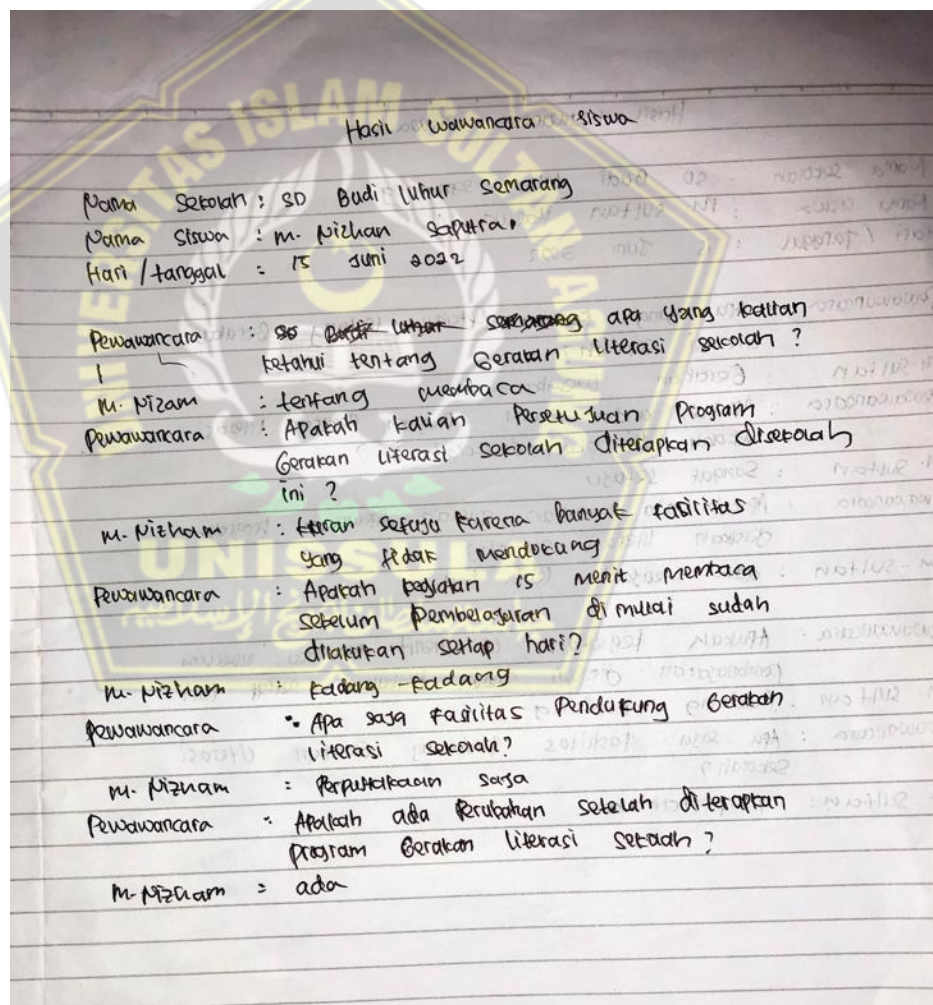 Hasil wawancara siswa
Nama Sekolah : SD Budi luhur Semarang
Nama Siswa : M. Nizhan Saputra
Hari / tanggal : 15 Juni 2022
Pewawancara : apa yang kalian
ketahui tentang Gerakan Literasi sekolah ?
M. Nizam : tentang membaca
Pewawancara : Apakah kalian Persetujuan Program
Gerakan Literasi sekolah diterapkan disekolah
ini ?
M. Nizham : setuju karena banyak fasilitas
yang tidak mendukung
Pewawancara : Apakah kegiatan 15 menit membaca
sebelum Pembelajaran di mulai sudah
dilakukan setiap hari?
M. Nizham : kadang - kadang
Pewawancara : Apa saja Fasilitas Pendukung Gerakan
Literasi sekolah?
M. Nizham : Perpustakaan saja
Pewawancara : Apakah ada Perubahan setelah diterapkan
program Gerakan literasi sekolah ?
M. Nizham : ada
UNIVERSITAS ISLAM SULTAN AGUNG
UNISSULA